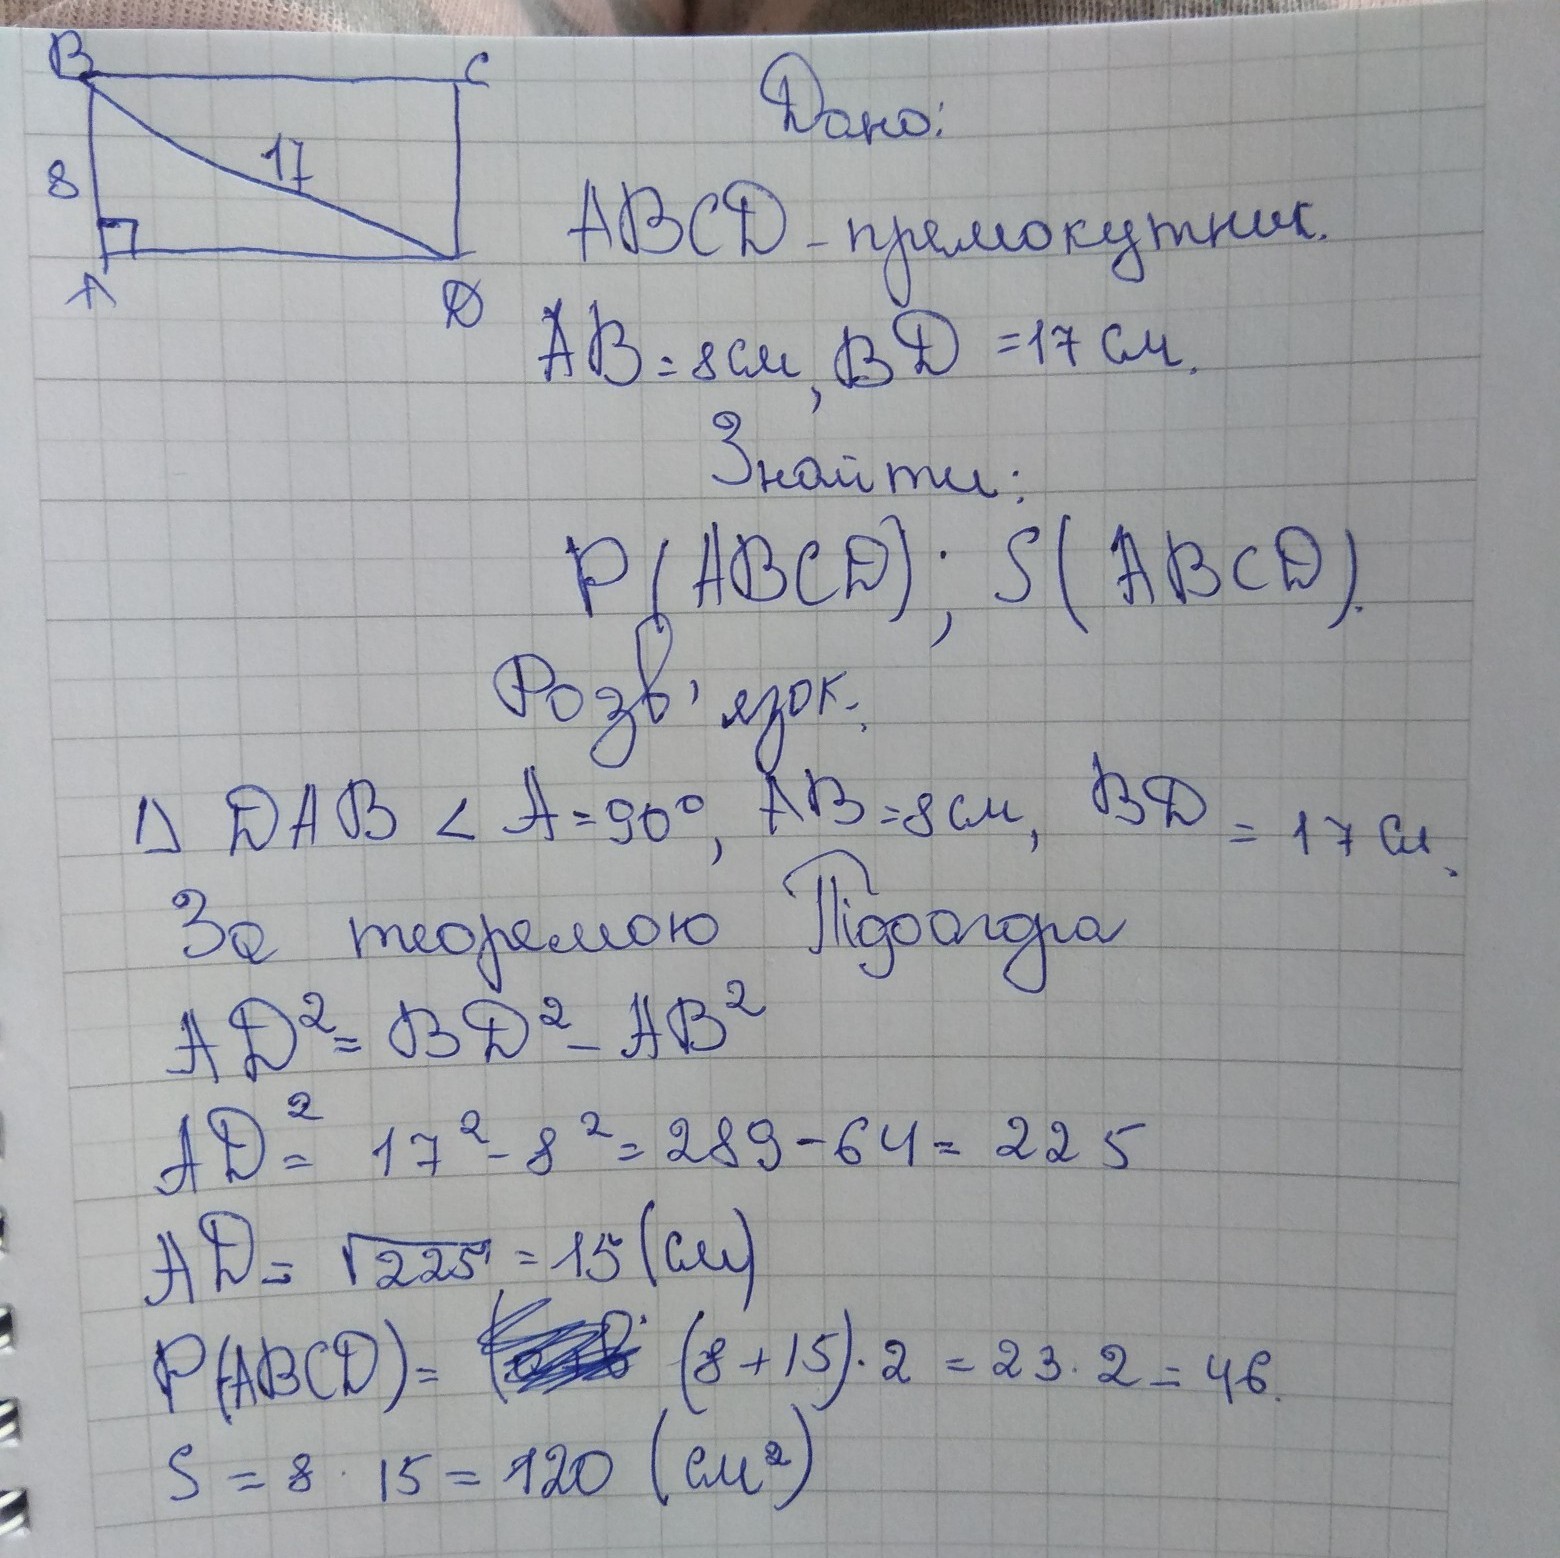 B C
17
8
A D
Дано:
ABCD - прямокутник.
AB = 8см, BD = 17 см.
Знайти:
P(ABCD); S(ABCD).
Розв'язок.
Δ DAB < A = 90°, AB = 8см, BD = 17 см.
За теоремою Підоагора
AD² = BD² - AB²
AD² = 17² - 8² = 289 - 64 = 225
AD = √225 = 15 (см)
P(ABCD) = (8 + 15) · 2 = 23 · 2 = 46.
S = 8 · 15 = 120 (см²)